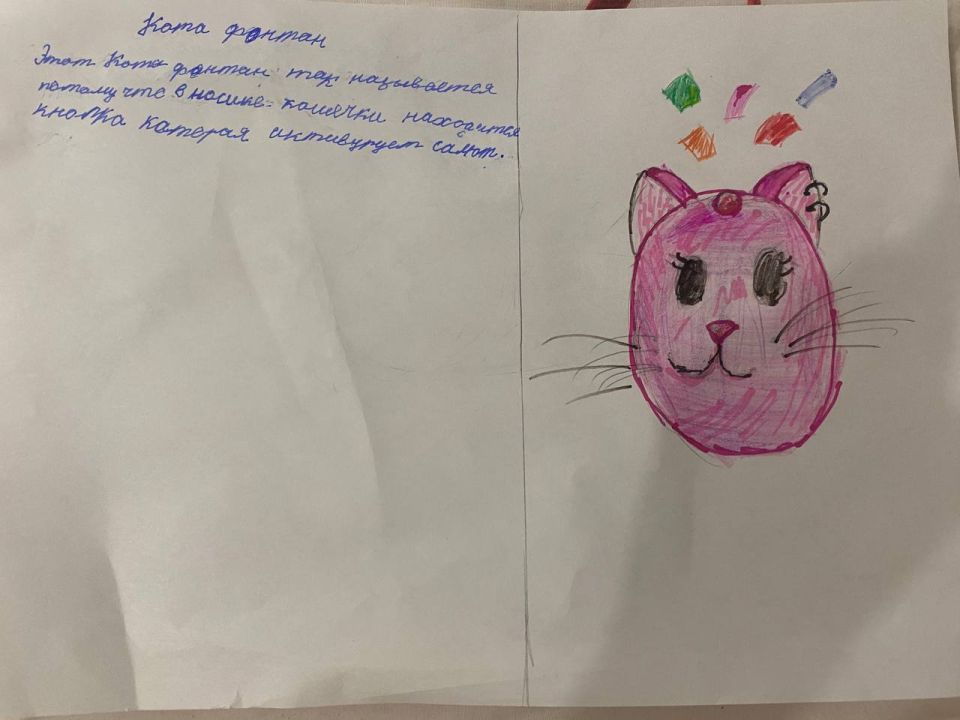 Кота фонтан
Этот Кота фонтан так называется
потому что в носике кошечки находится
кнопка каторая активирует салют.